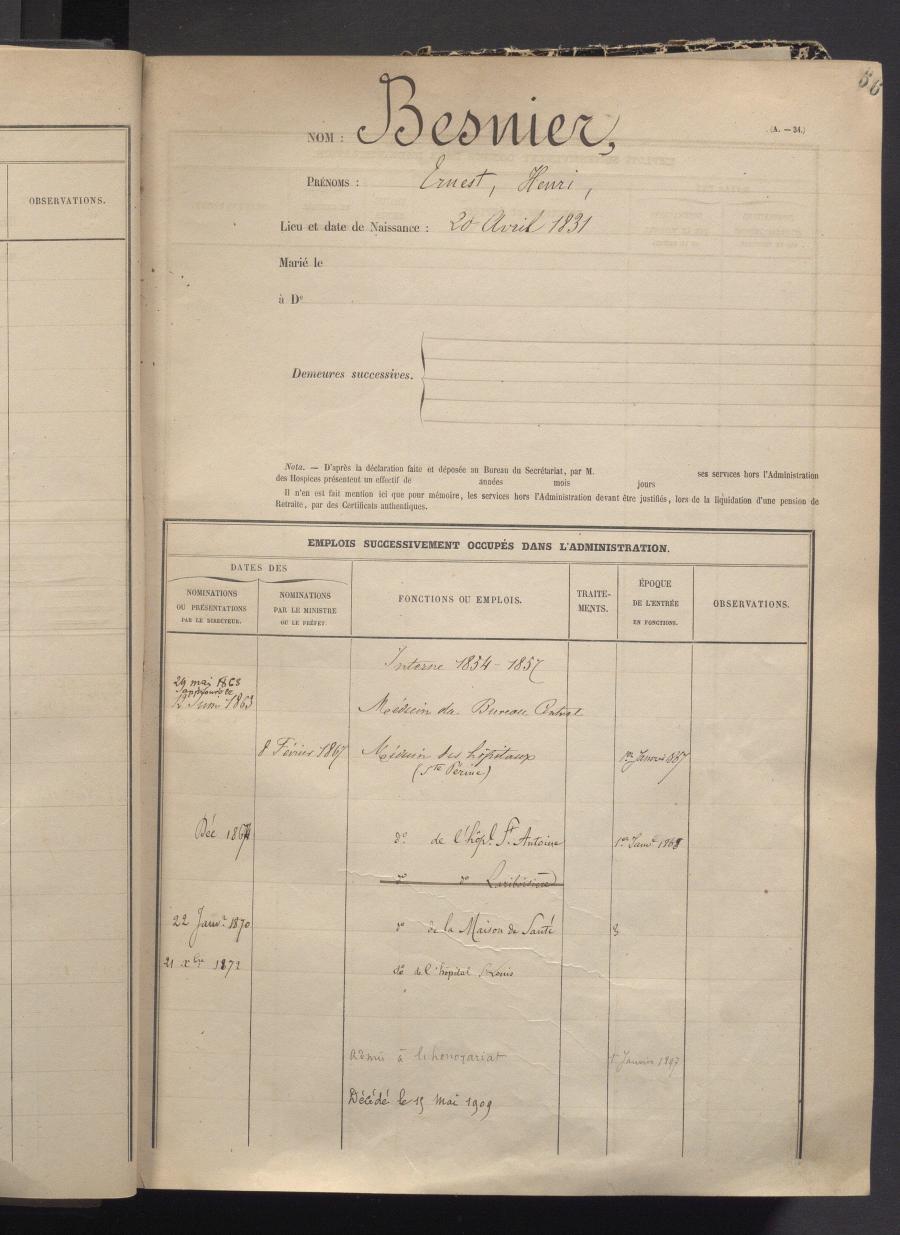 56
(A. — 34.)
NOM : Besnier,
PRÉNOMS : Ernest, Henri,
Lieu et date de Naissance : 20 Avril 1831
Marié le
à De
Demeures successives.
Nota. — D'après la déclaration faite et déposée au Bureau du Secrétariat, par M. ses services hors l'Administration
des Hospices présentent un effectif de années mois jours
Il n'en est fait mention ici que pour mémoire, les services hors l'Administration devant être justifiés, lors de la liquidation d'une pension de
Retraite, par des Certificats authentiques.
OBSERVATIONS.
EMPLOIS SUCCESSIVEMENT OCCUPÉS DANS L'ADMINISTRATION.
DATES DES
NOMINATIONS
OU PRÉSENTATIONS
PAR LE DIRECTEUR.
NOMINATIONS
PAR LE MINISTRE
OU LE PRÉFET.
FONCTIONS OU EMPLOIS.
TRAITE-
MENTS.
ÉPOQUE
DE L'ENTRÉE
EN FONCTIONS.
OBSERVATIONS.
Interne 1854 - 1857
29 mai 1863
12 Juin 1863 Médecin du Bureau Central
8 Février 1867 Médecin des hôpitaux 1er Janvier 1867
(Ste Périne)
Déc 1867 do de l'hôpl St Antoine 1er Janvr 1868
do do Lariboisière
22 Janvr 1870 do de la Maison de Santé
21 xbre 1872 do de l'hôpital St Louis
admis à l'honorariat 1r Janvier 1897
Décédé le 15 Mai 1909